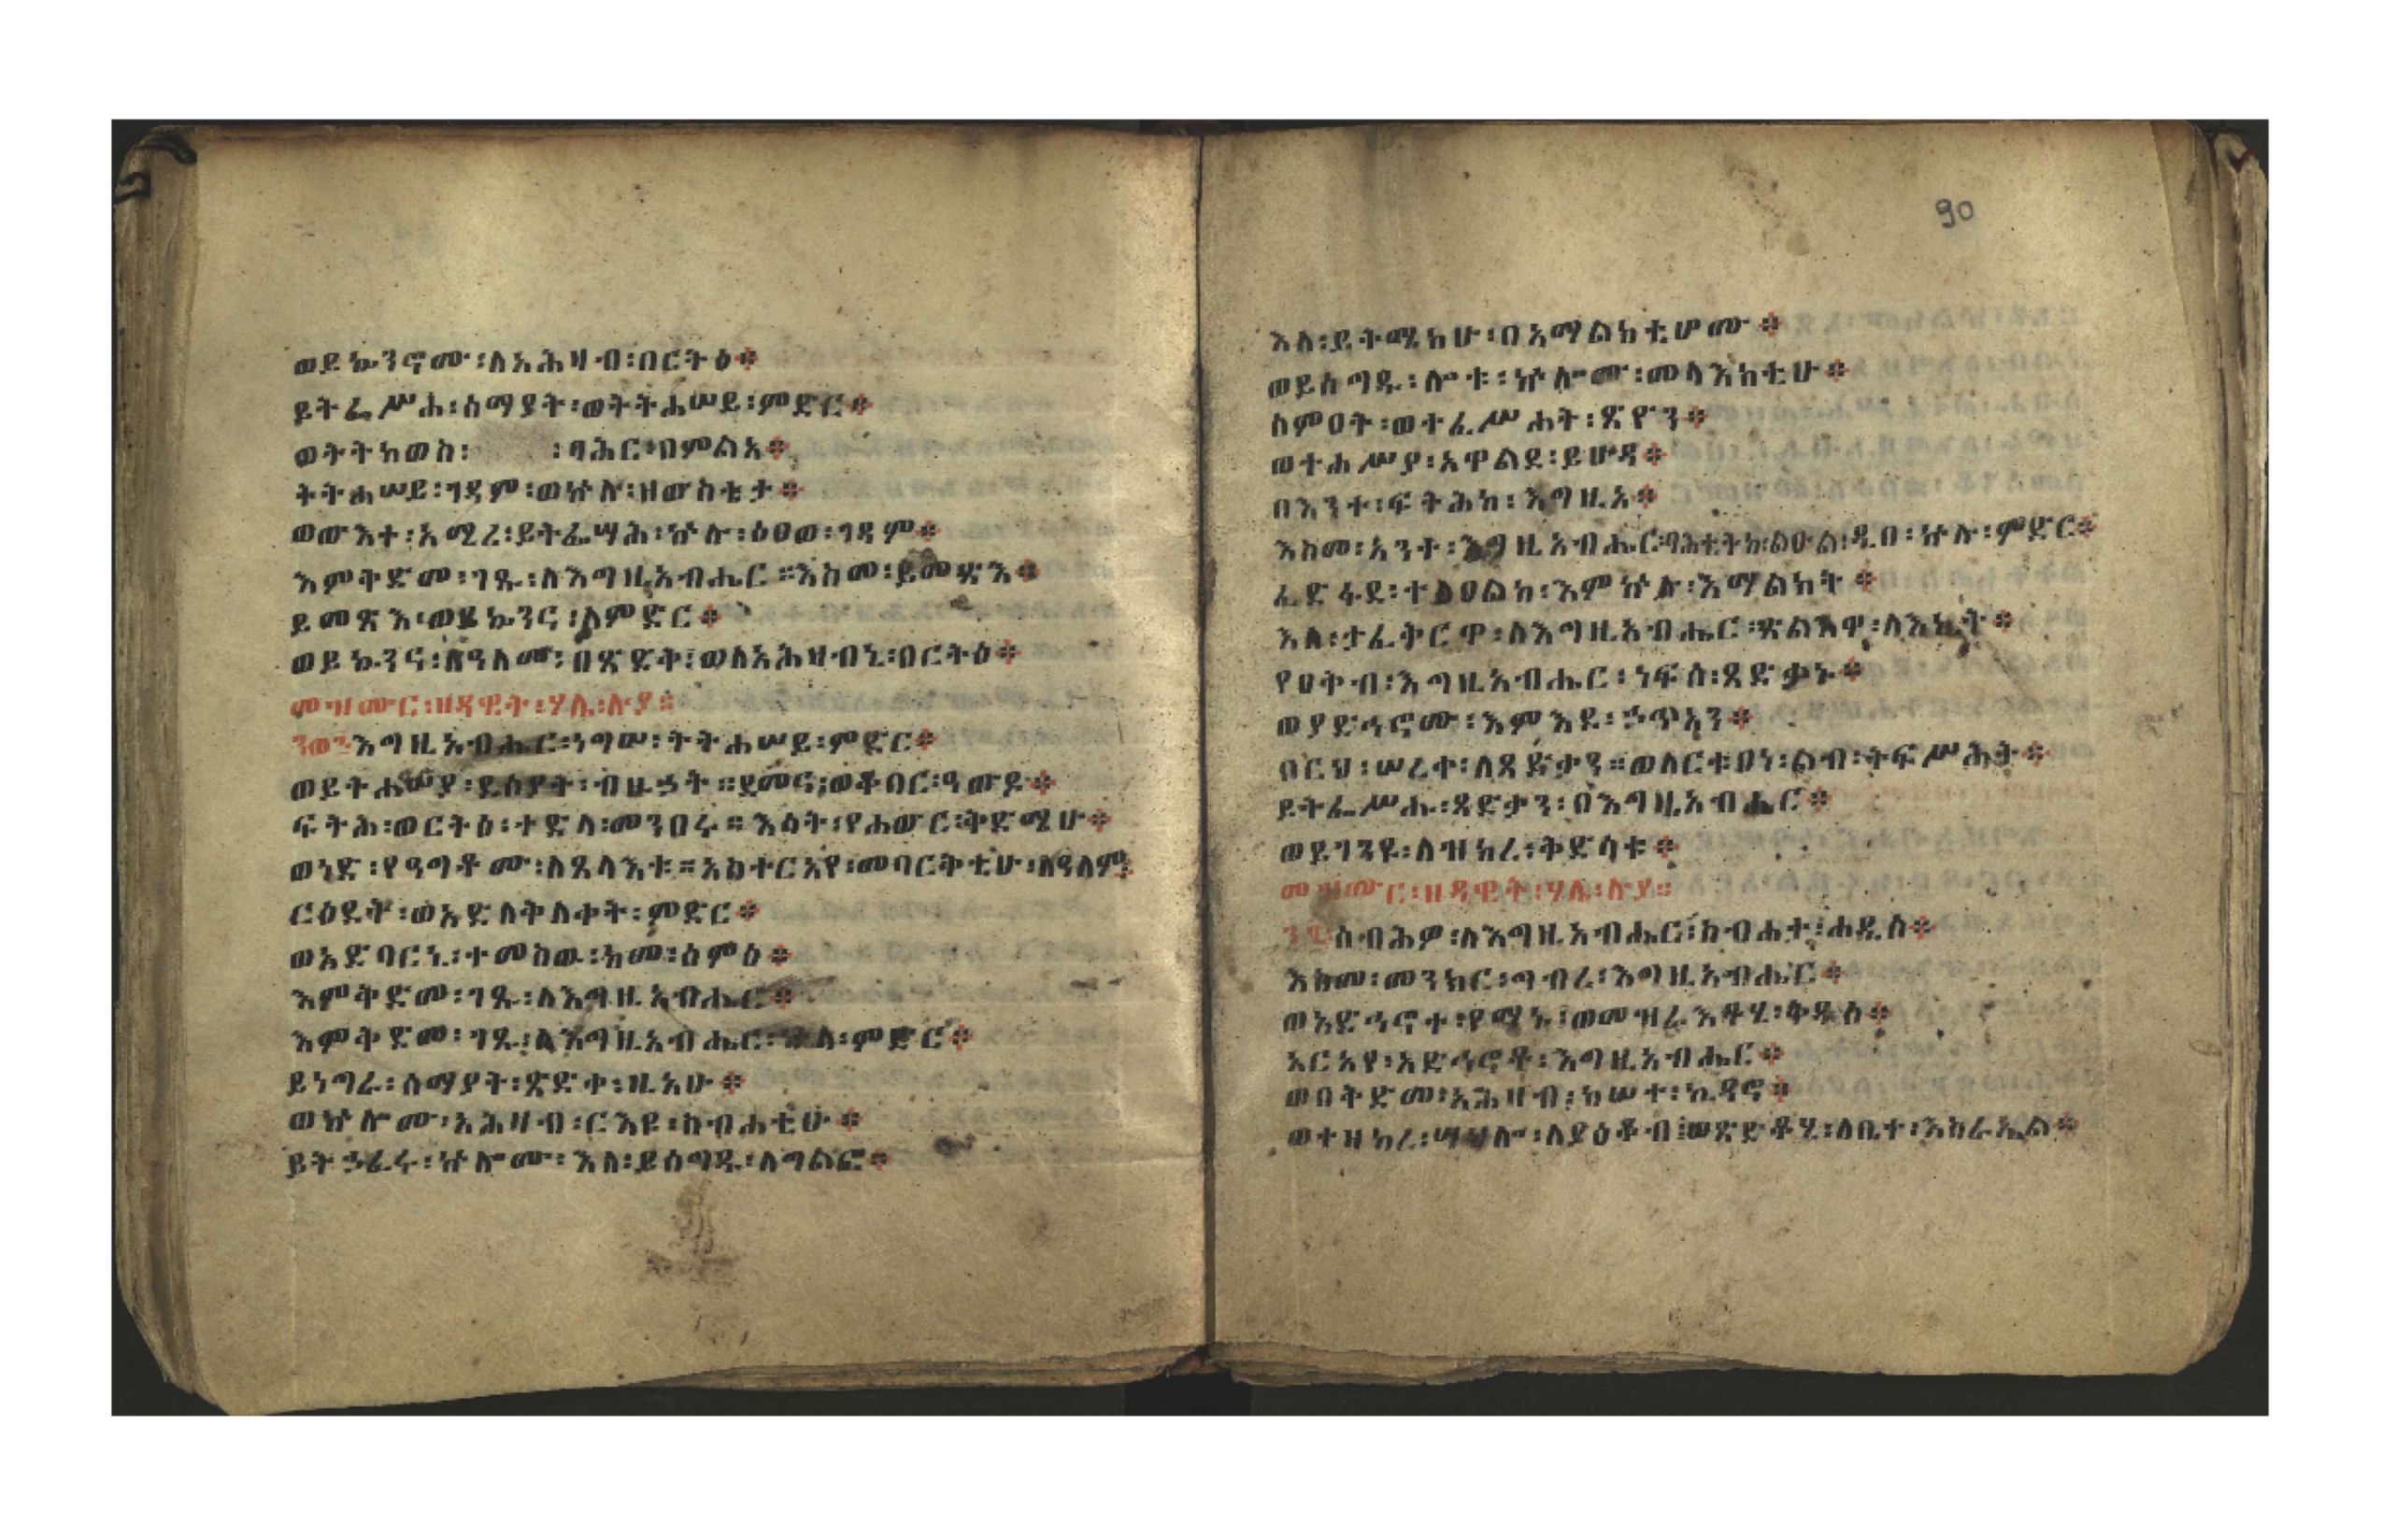 ወይኴንኖሙ፡ለአሕዛብ፡በርትዕ፨
ይትፌሥሐ፡ሰማያት፡ወትትሐሠይ፡ምድር፨
ወትትከወስ፡ ፡ባሕር፡በምልአ፨
ትትሐሠይ፡ገዳም፡ወኵሉ፡ዘውስቴታ፨
ወውእተ፡አሚረ፡ይትፌሣሕ፡ኵሉ፡ዕፀወ፡ገዳም፨
እምቅድመ፡ገጹ፡ለእግዚአብሔር፡፡እስመ፡ይመጽእ፨
ይመጽእ፡ወይኴንና፡ለምድር፨
ወይኴንና፡ለዓለም፡በጽድቅ፡ወለአሕዛብኒ፡በርትዕ፨
መዝሙር፡ዘዳዊት፡ሃሌ፡ሉያ፡፡
እግዚአብሔር፡ነግሠ፡ትትሐሠይ፡ምድር፨
ወይትሐሠያ፡ደሰያት፡ብዙኃት፡፡ደመና፡ወቆበር፡ዓውዱ፨
ፍትሕ፡ወርትዕ፡ተድላ፡መንበሩ፡፡እሳት፡የሐውር፡ቅድሜሁ፨
ወነድ፡የዓግቶሙ፡ለጸላእቱ፡፡አስተርአየ፡መባርቅቲሁ፡ለዓለም፨
ርዕደት፡ወአድለቅለቀት፡ምድር፨
ወአድባርኒ፡ተመስወ፡ከመ፡ሰምዕ፨
እምቅድመ፡ገጹ፡ለእግዚአብሔር፨
እምቅድመ፡ገጹ፡ለእግዚአብሔር፡ ምድር፨
ይነግራ፡ሰማያት፡ጽድቀ፡ዚአሁ፨
ወኵሎሙ፡አሕዛብ፡ርእዩ፡ስብሐቲሁ፨
ይትኃፈሩ፡ኵሎሙ፡እለ፡ይሰግዱ፡ለግልፎ፨
90
እለ፡ይትሜክሁ፡በአማልክቲሆሙ፨
ወይሰግዱ፡ሎቱ፡ኵሎሙ፡መላእክቲሁ፨
ሰምዐት፡ወተፈሥሐት፡ጽዮን፨
ወተሐሥያ፡አዋልደ፡ይሁዳ፨
በእንተ፡ፍትሕከ፡እግዚአ፨
እስመ፡አንተ፡እግዚአብሔር፡ባሕቲትከ፡ልዑል፡ዲበ፡ኵሉ፡ምድር፨
ፈድፋደ፡ተለዐልከ፡እምኵሉ፡አማልክት፨
እለ፡ታፈቅርዋ፡ለእግዚአብሔር፡ጽልእዋ፡ለእኪት፨
የዐቅብ፡እግዚአብሔር፡ነፍሰ፡ጻድቃኑ፨
ወያድኅኖሙ፡እምእደ፡ኃጥአን፨
በርህ፡ሠረቀ፡ለጻድቃን፡፡ወለርቱዐነ፡ልብ፡ትፍሥሕት፨
ይትፌሥሑ፡ጻድቃን፡በእግዚአብሔር፨
ወይገንዩ፡ለዝክረ፡ቅድሳቱ፨
መዝሙር፡ዘዳዊት፡ሃሌ፡ሉያ፡፡
ሰብሕዎ፡ለእግዚአብሔር፡ስብሐተ፡ሐዲስ፨
እስመ፡መንክር፡ግብረ፡እግዚአብሔር፨
ወአድኅኖተ፡የማኑ፡ወመዝራእቶሂ፡ቅዱስ፨
አርአየ፡አድኅኖቶ፡እግዚአብሔር፨
ወበቅድመ፡አሕዛብ፡ከሠተ፡ኪዳኖ፨
ወተዘከረ፡ ለያዕቆብ፡ወጽድቆሂ፡ለቤተ፡እስራኤል፨